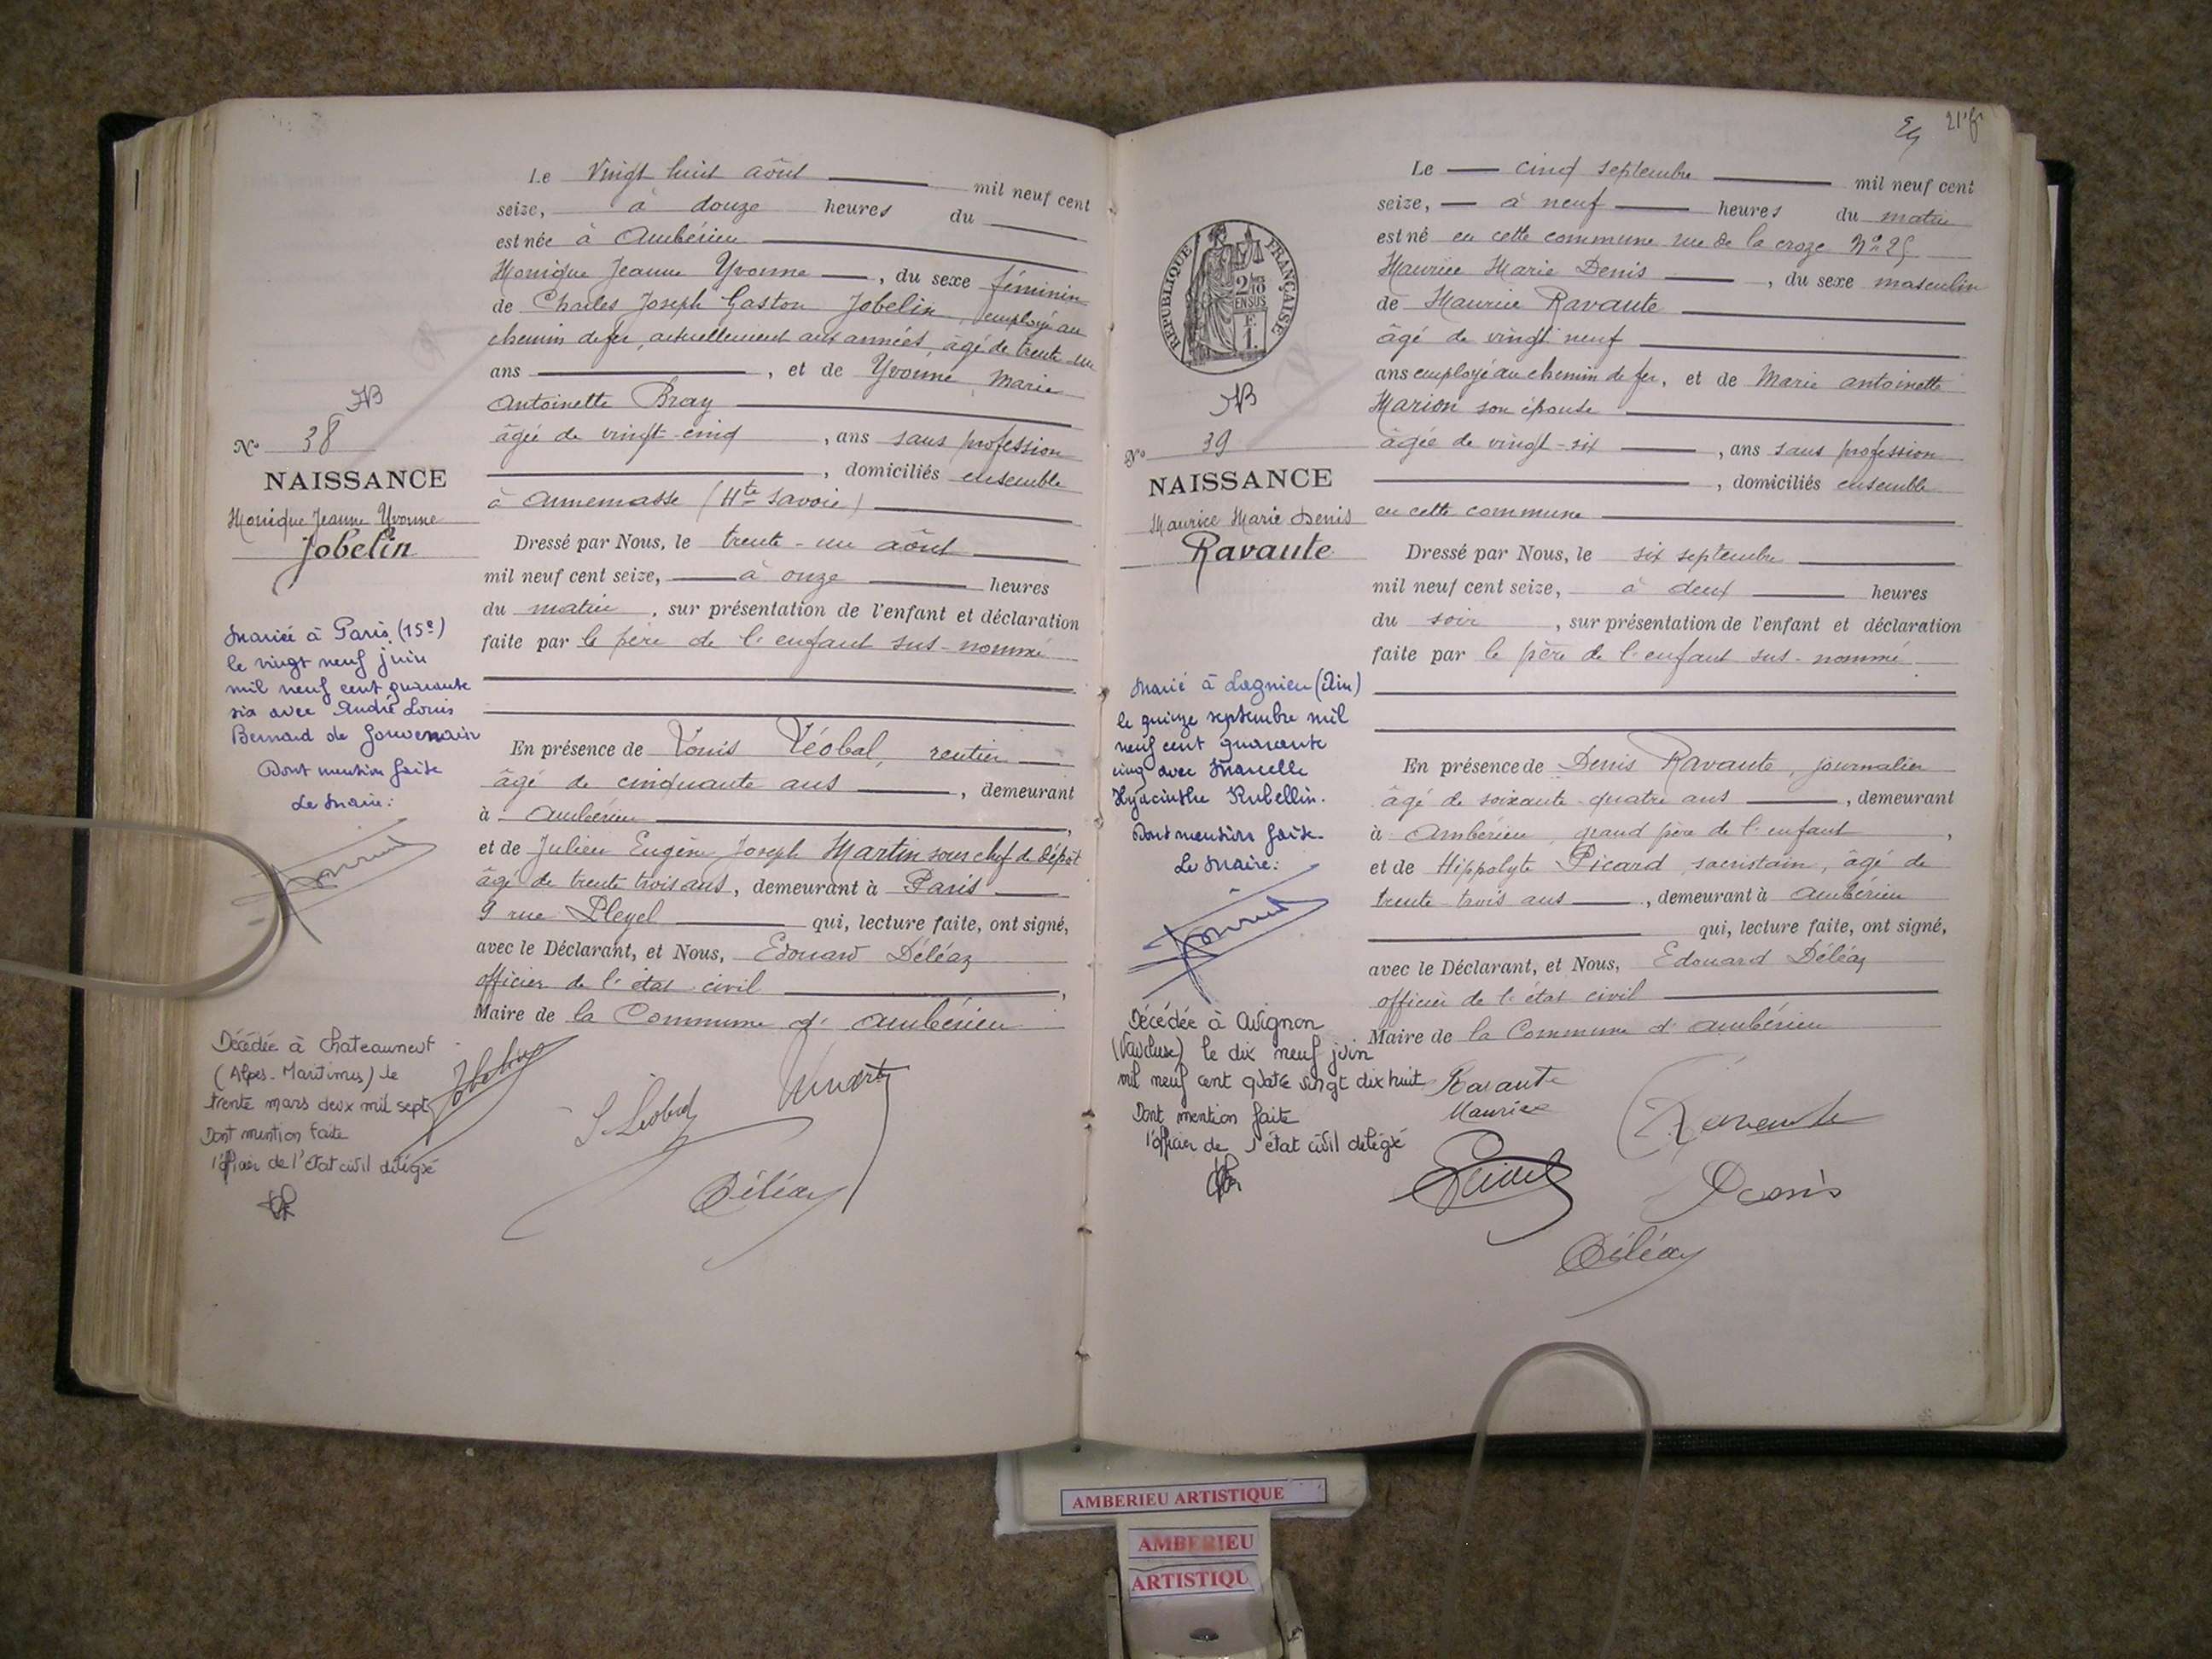 Le Vingt huit août mil neuf cent
seize, à douze heures du
est née à Ambérieu
Monique Jeanne Yvonne, du sexe féminin
de Charles Joseph Gaston Jobelin, employé au
chemin de fer, actuellement aux armées, âgé de trente un
ans, et de Yvonne Marie
Antoinette Bray
âgée de vingt-cinq, ans sans profession
, domiciliés ensemble
à Annemasse (Hte Savoie)
Dressé par Nous, le trente-un août
mil neuf cent seize, à onze heures
du matin, sur présentation de l'enfant et déclaration
faite par le père de l'enfant sus-nommé
En présence de Louis Léobal, rentier
âgé de cinquante ans, demeurant
à Ambérieu,
et de Julien Eugène Joseph Martin sous chef de dépôt
âgé de trente trois ans, demeurant à Paris
9 rue Pleyel qui, lecture faite, ont signé,
avec le Déclarant, et Nous, Edouard Déléaz
officier de l'état civil,
Maire de la Commune d'Ambérieu
Déléaz
No 38
NAISSANCE
Monique Jeanne Yvonne
Jobelin
Mariée à Paris (15e)
le vingt neuf juin
mil neuf cent quarante
six avec André Louis
Bernard de Gouvenain
Dont mention faite
Le Maire:
Décédée à Chateauneuf
(Alpes-Maritimes) le
trente mars deux mil sept
Dont mention faite
l'officier de l'état civil délégué
21
Le cinq septembre mil neuf cent
seize, à neuf heures du matin
est né en cette commune rue de la croze No 25
Maurice Marie Denis, du sexe masculin
de Maurice Ravaute
âgé de vingt neuf
ans employé au chemin de fer, et de Marie Antoinette
Marion son épouse
âgée de vingt-six, ans sans profession
, domiciliés ensemble
en cette commune
Dressé par Nous, le six septembre
mil neuf cent seize, à deux heures
du soir, sur présentation de l'enfant et déclaration
faite par le père de l'enfant sus-nommé
En présence de Denis Ravaute, journalier
âgé de soixante-quatre ans, demeurant
à Ambérieu, grand père de l'enfant,
et de Hippolyte Picard, sacristain, âgé de
trente-trois ans, demeurant à Ambérieu
qui, lecture faite, ont signé,
avec le Déclarant, et Nous, Edouard Déléaz
officier de l'état civil
Maire de la Commune d'Ambérieu
Ravaute
Maurice
Ravaute
Denis
Déléaz
RÉPUBLIQUE FRANÇAISE
2/10
EN SUS
F.
1.
No 39
NAISSANCE
Maurice Marie Denis
Ravaute
Marié à Lagnieu (Ain)
le quinze septembre mil
neuf cent quarante
cinq avec Marcelle
Hyacinthe Rubellin.
Dont mention faite.
Le Maire:
Décédée à Avignon
(Vaucluse) le dix neuf juin
mil neuf cent quatre vingt dix huit
Dont mention faite
l'officier de l'état civil délégué
AMBERIEU ARTISTIQUE
AMBERIEU
ARTISTIQU